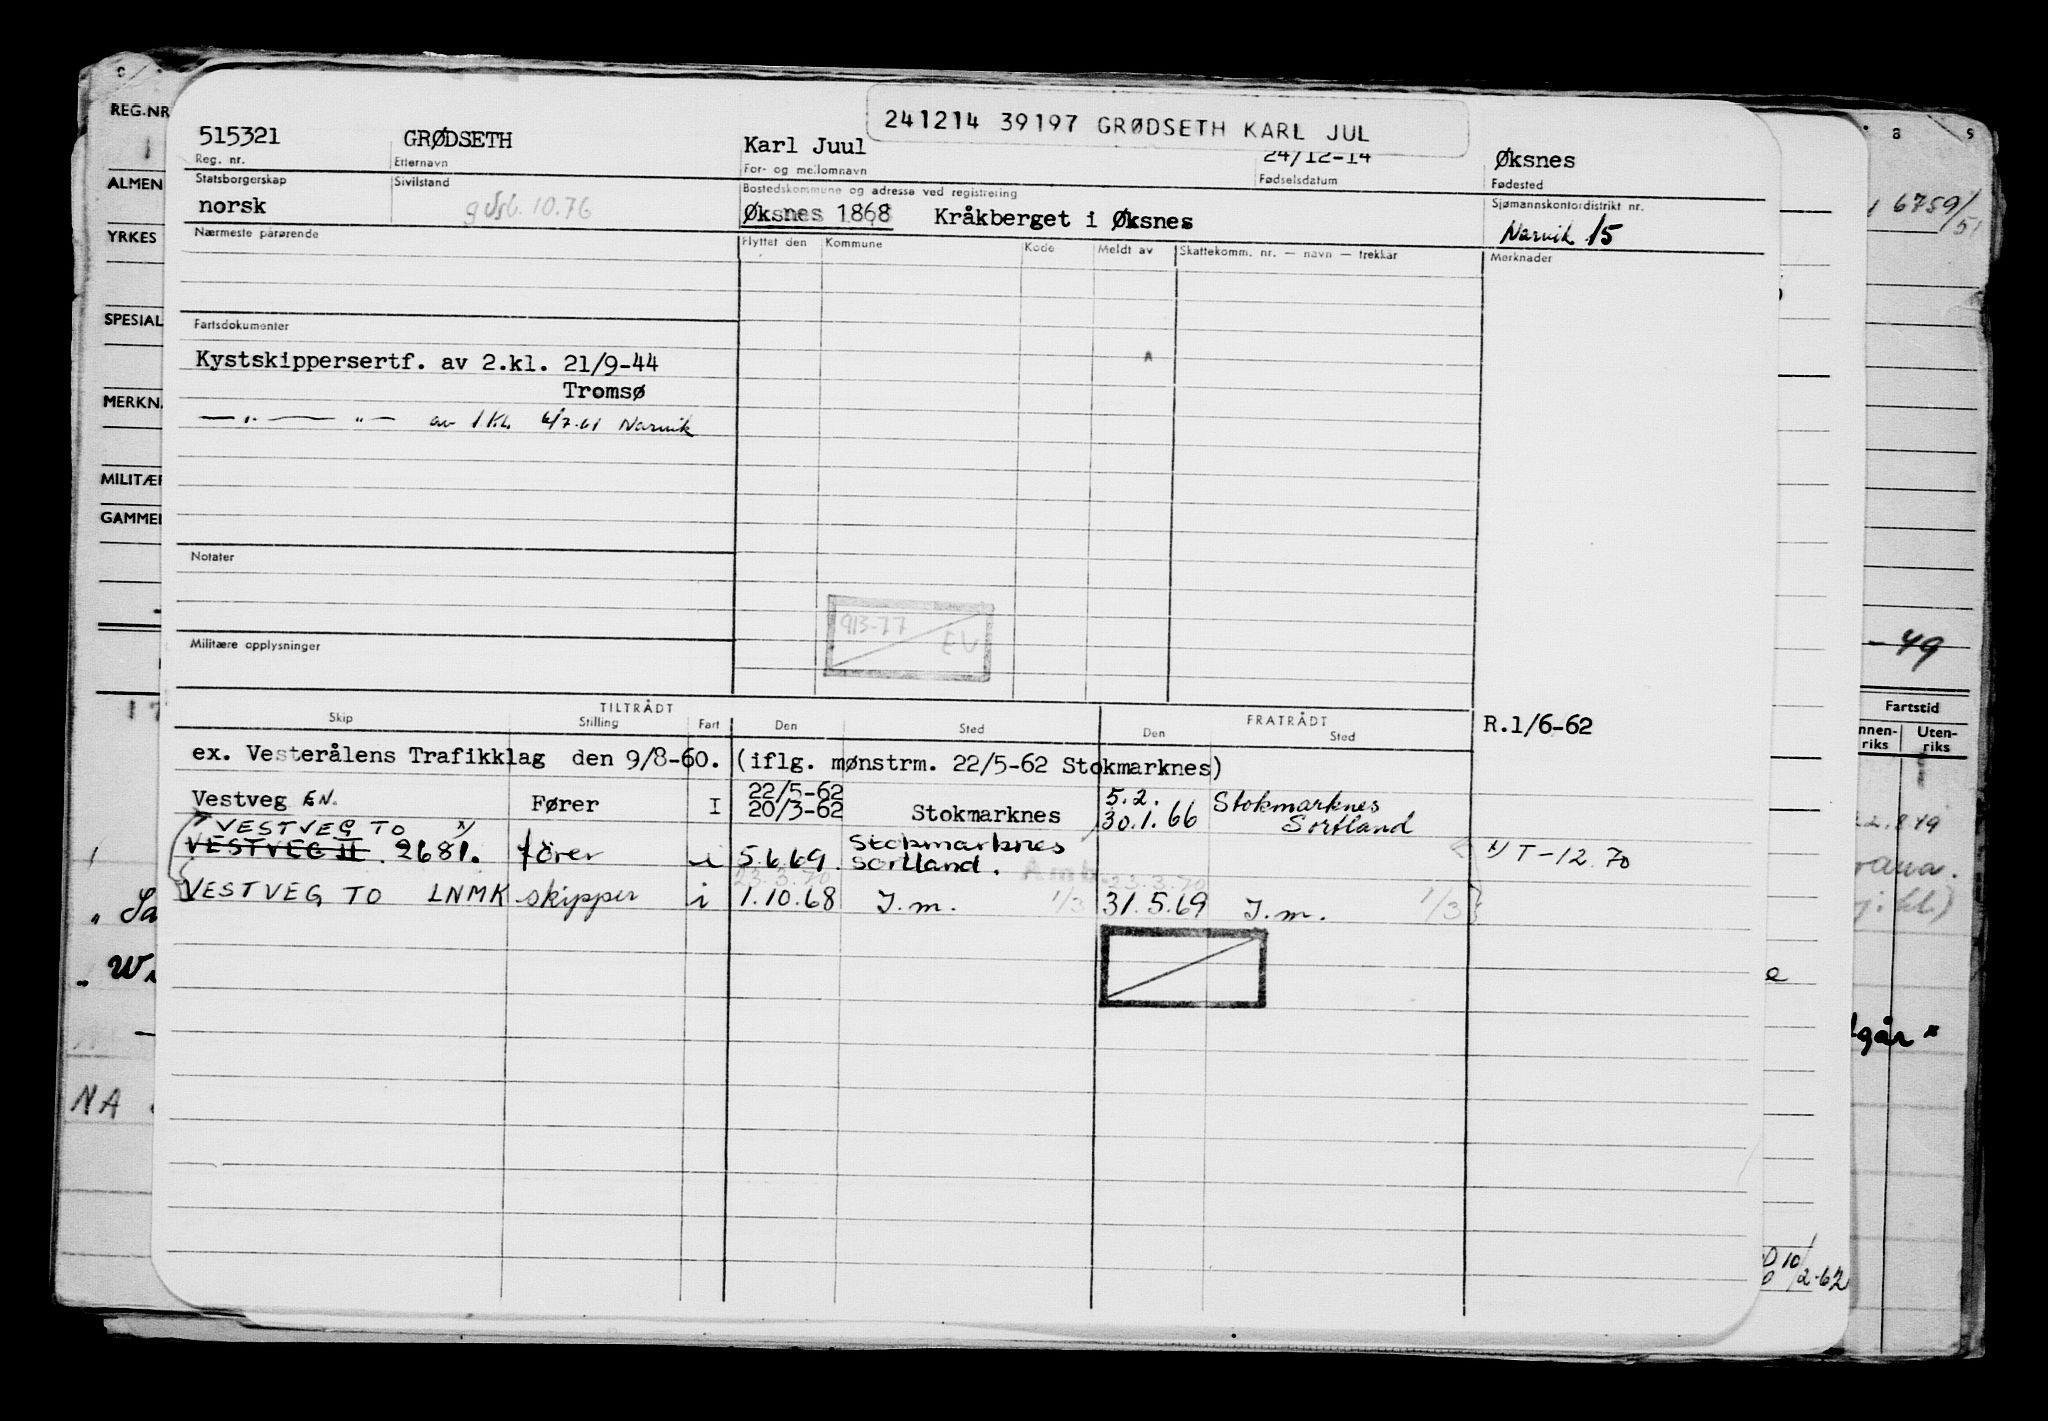 241214 39197 GRØDSETH KARL JUL
REG.NR
515321 GRØDSETH Karl Juul 24/12-14 Øksnes
Reg. nr. Etternavn For- og mellomnavn Fødselsdatum Fødested
ALMEN
Statsborgerskap Sivilstand Bostedskommune og adresse ved registrering Sjømannskontordistrikt nr.
norsk Øksnes 1868 Kråkberget i Øksnes Narvik 15
6759/51
YRKES
Nærmeste pårørende Flyttet den Kommune Kode Meldt av Skattekomm. nr. — navn — trekkår Merknader
SPESIAL
Fartsdokumenter
Kystskippersertf. av 2.kl. 21/9-44
Tromsø
MERKN.
— " — " — av 1 Kl. 6/7.61 Narvik
MILITÆR
GAMMEL
Notater
913-77 EU
Militære opplysninger
-49
TILTRÅDT FRATRÅDT
Skip Stilling Fart Den Sted Den Sted
R.1/6-62
Fartstid
nnen-riks Uten-riks
ex. Vesterålens Trafikklag den 9/8-60. (iflg. mønstrm. 22/5-62 Stokmarknes)
22/5-62 5.2. Stokmarknes
Vestveg EN. Fører I 20/3-62 Stokmarknes 30.1.66 Sortland
VESTVEG TO x/ Stokmarknes
VESTVEG II. 2681. fører i 5.6.69. Sortland. x/ T-12.70
23.3.70 23.3.70
VESTVEG TO LNMK skipper i 1.10.68 I.m. 1/3 31.5.69 I.m. 1/3
NA
10/2-62